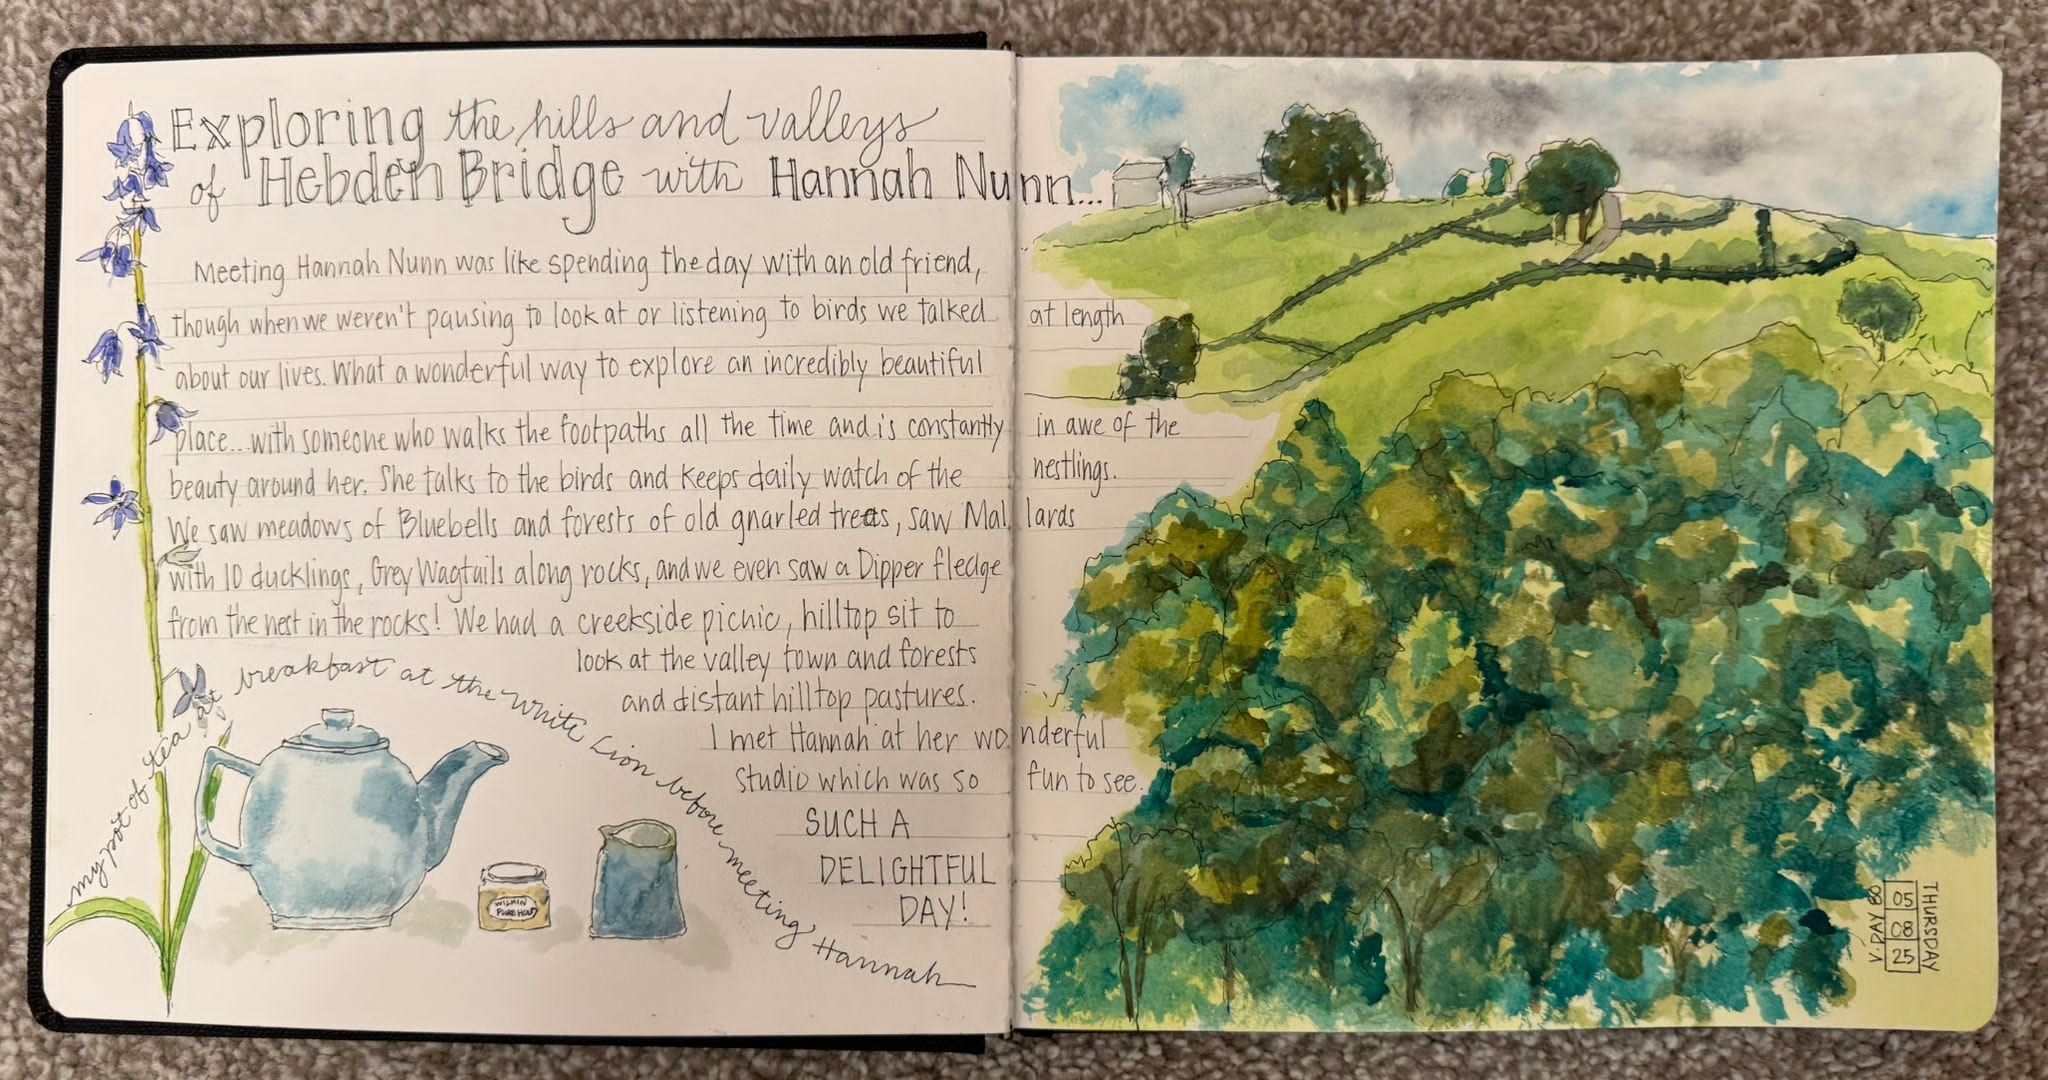 Exploring the hills and valleys
of Hebden Bridge with Hannah Nunn...
Meeting Hannah Nunn was like spending the day with an old friend,
though when we weren't pausing to look at or listening to birds we talked at length
about our lives. What a wonderful way to explore an incredibly beautiful
place...with someone who walks the footpaths all the time and is constantly in awe of the
beauty around her. She talks to the birds and keeps daily watch of the nestlings.
We saw meadows of Bluebells and forests of old gnarled trees, saw Mallards
with 10 ducklings, Grey Wagtails along rocks, and we even saw a Dipper fledge
from the nest in the rocks! We had a creekside picnic, hilltop sit to
look at the valley town and forests
and distant hilltop pastures.
I met Hannah at her wonderful
studio which was so fun to see.
SUCH A
DELIGHTFUL
DAY!
my pot of tea at breakfast at the White Lion before meeting Hannah
WILKIN
PURE
THURSDAY
05
08
25
V. DAY 80